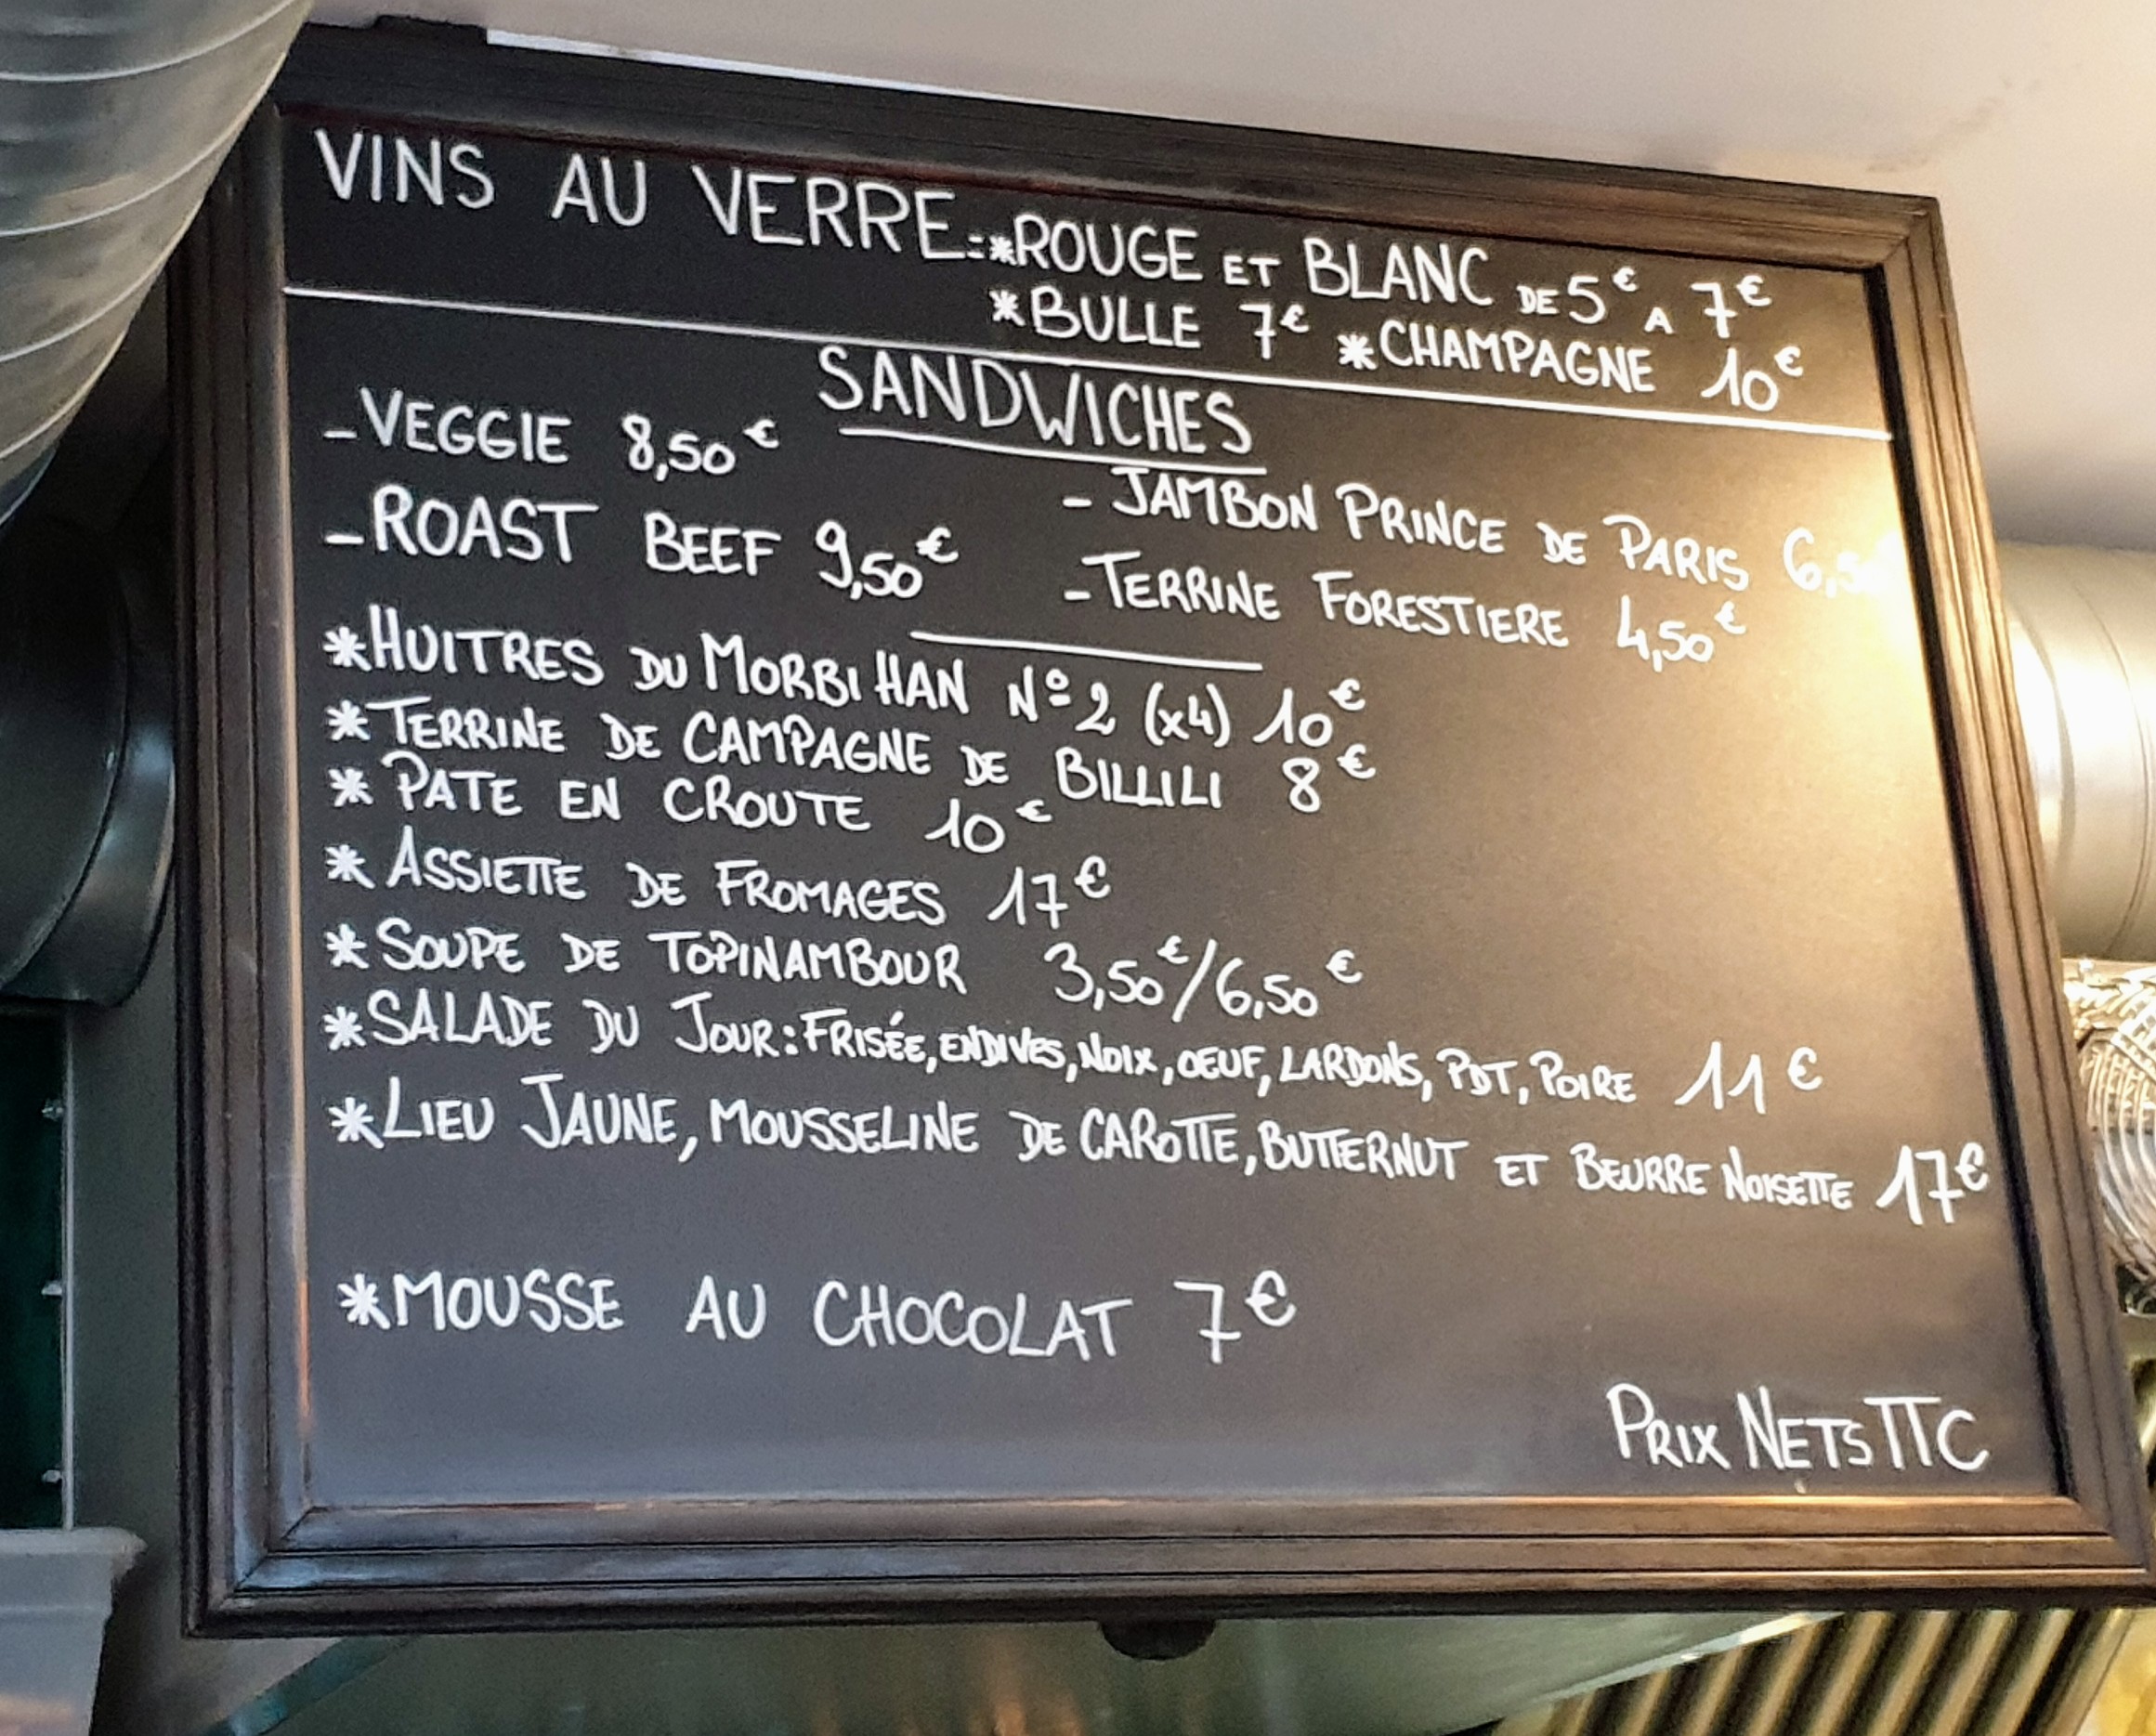 VINS AU VERRE=*ROUGE ET BLANC DE 5€ A 7€
*BULLE 7€ *CHAMPAGNE 10€
SANDWICHES
-VEGGIE 8,50€
-ROAST BEEF 9,50€
- JAMBON PRINCE DE PARIS 6,5
-TERRINE FORESTIERE 4,50€
*HUITRES DU MORBIHAN Nº2 (x4) 10€
*TERRINE DE CAMPAGNE DE BILLILI 8€
* PATE EN CROUTE 10€
* ASSIETTE DE FROMAGES 17€
* SOUPE DE TOPINAMBOUR 3,50€/6,50€
*SALADE DU JOUR: FRISÉE, ENDIVES, NOIX, OEUF, LARDONS, PDT, POIRE 11€
*LIEU JAUNE, MOUSSELINE DE CAROTTE, BUTTERNUT ET BEURRE NOISETTE 17€
*MOUSSE AU CHOCOLAT 7€
PRIX NETS TTC